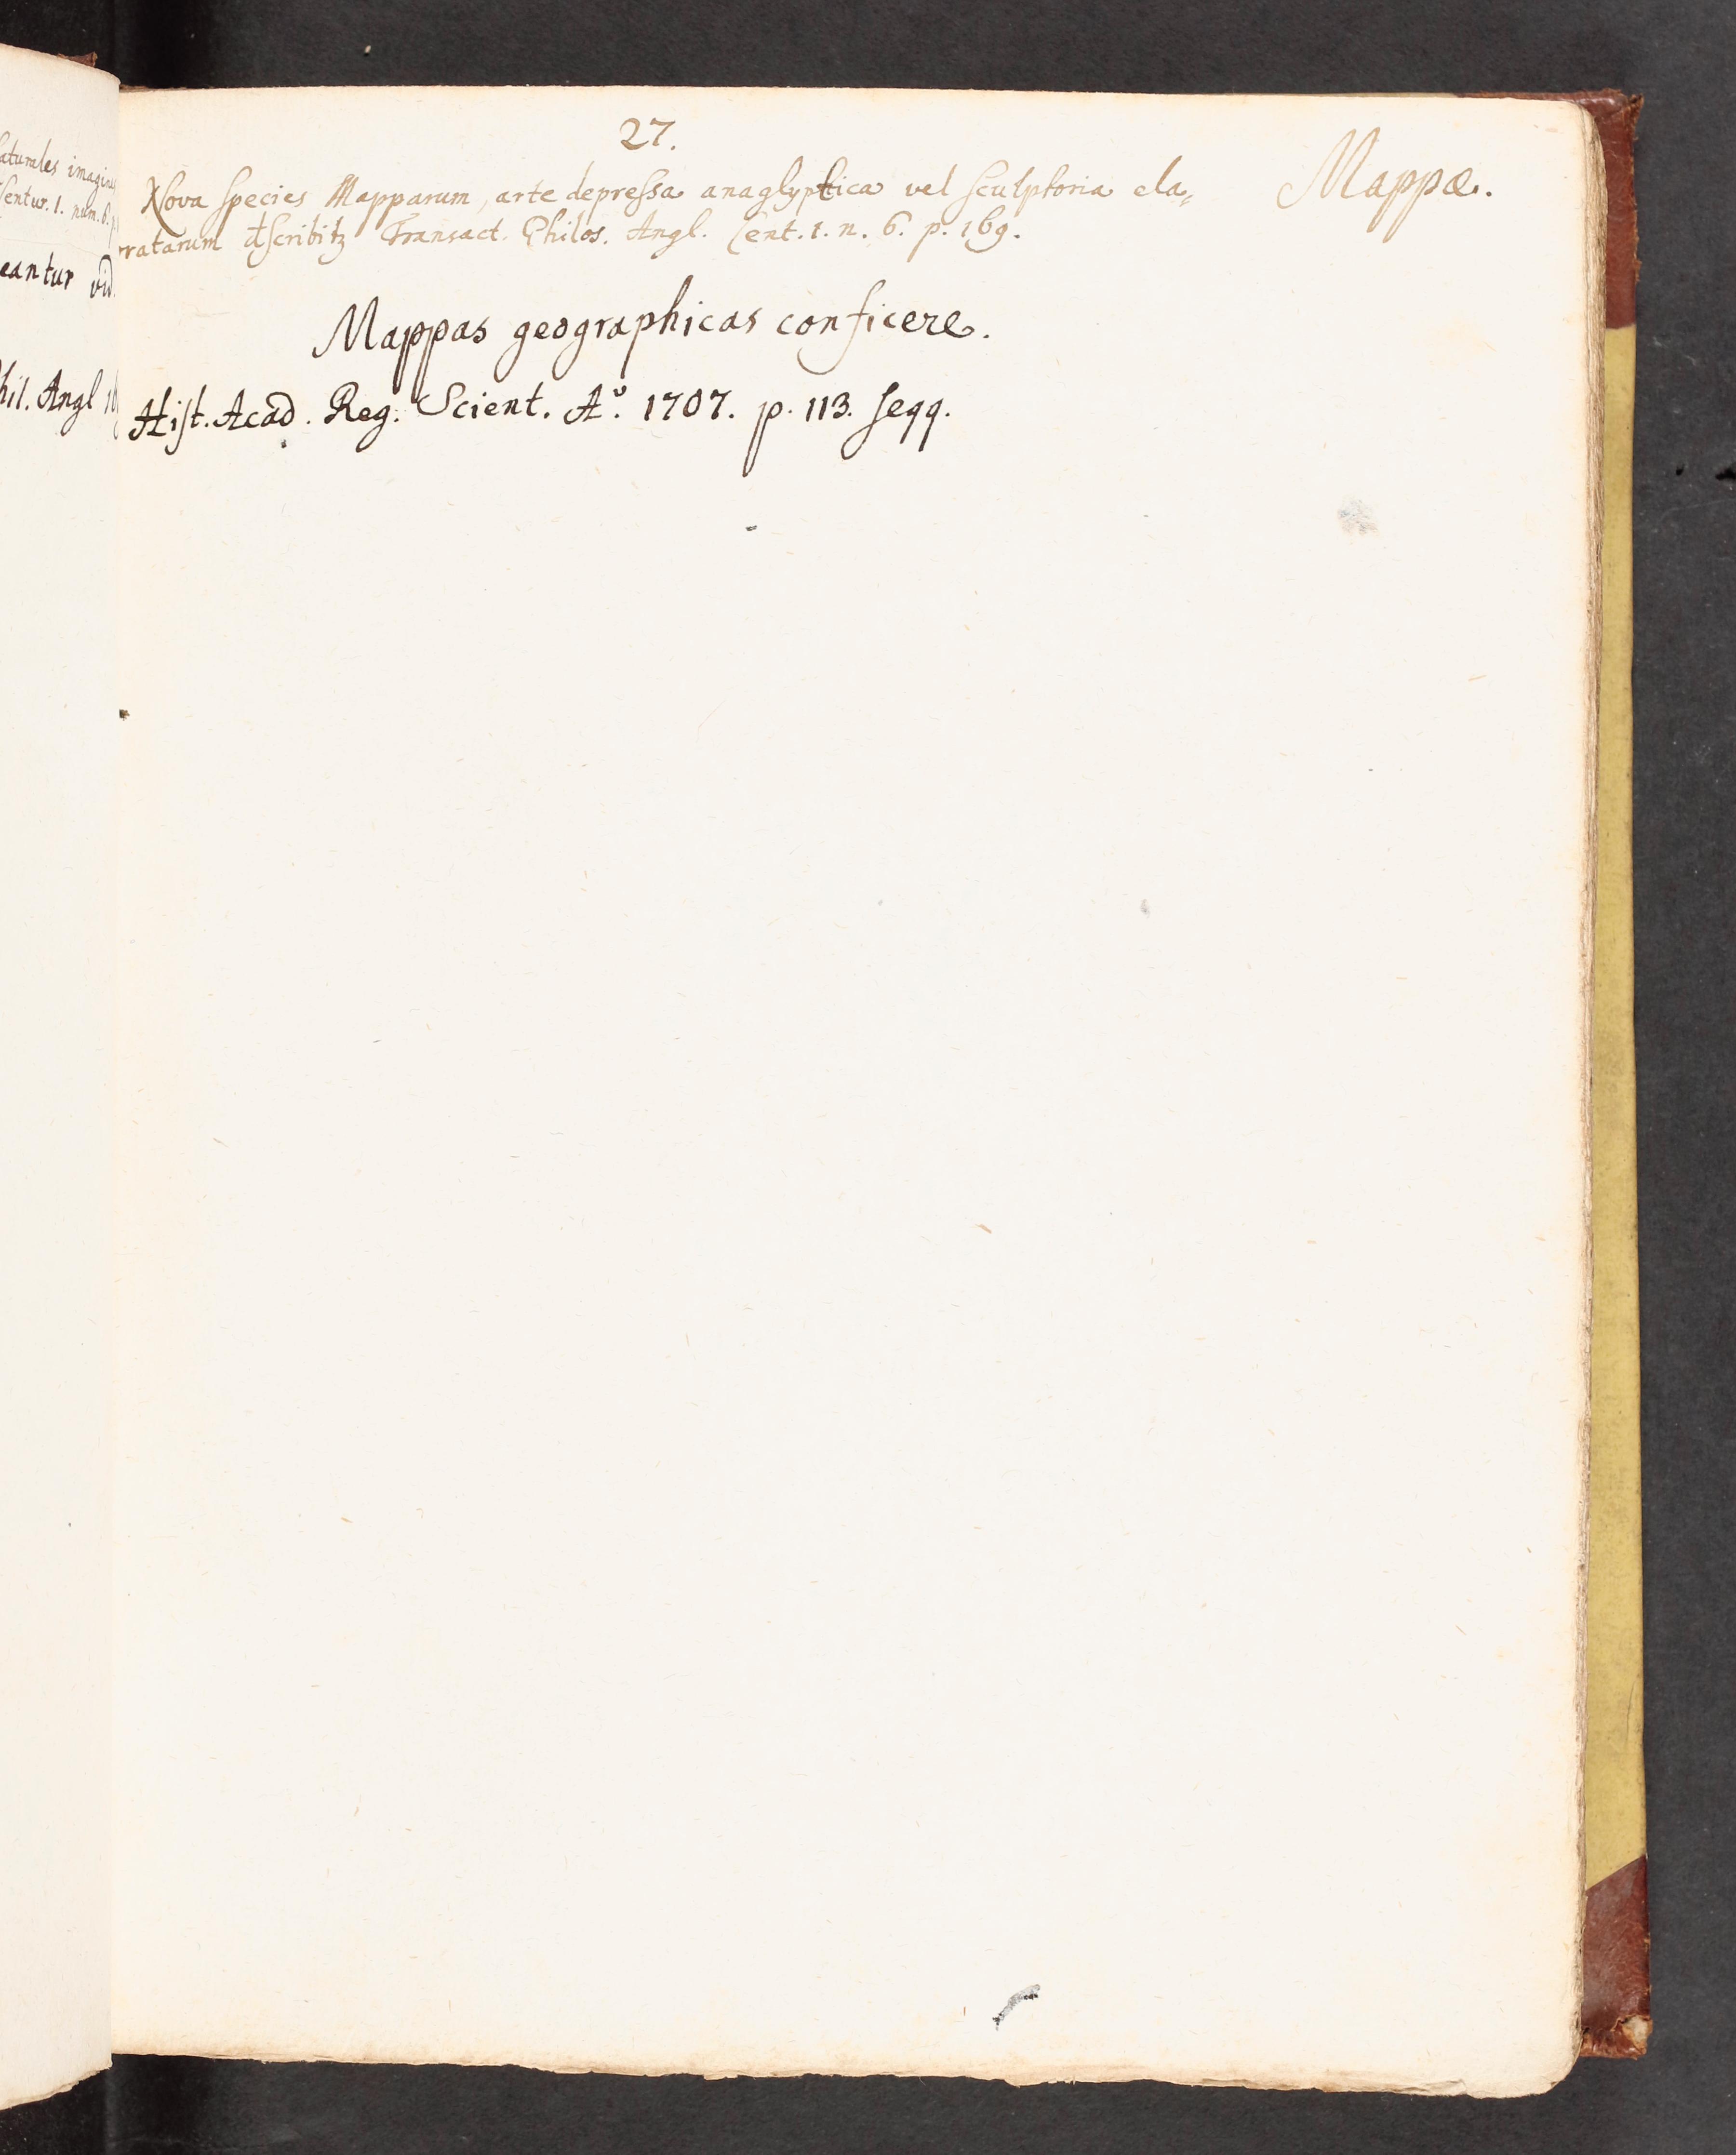 27.
Mappæ.
Nova species Mapparum, arte depressa anaglyptica vel sculptoria ela„
ratarum dscribitz Transact. Philos. Angl. Cent. 1. n. 6. p. 169.
Mappas geographicas conficere.
Hist. Acad. Reg. Scient. Aº. 1707. p. 113. seqq.
aturales imagines
Centur. 1. num. 6.
eantur vid.
hil. Angl